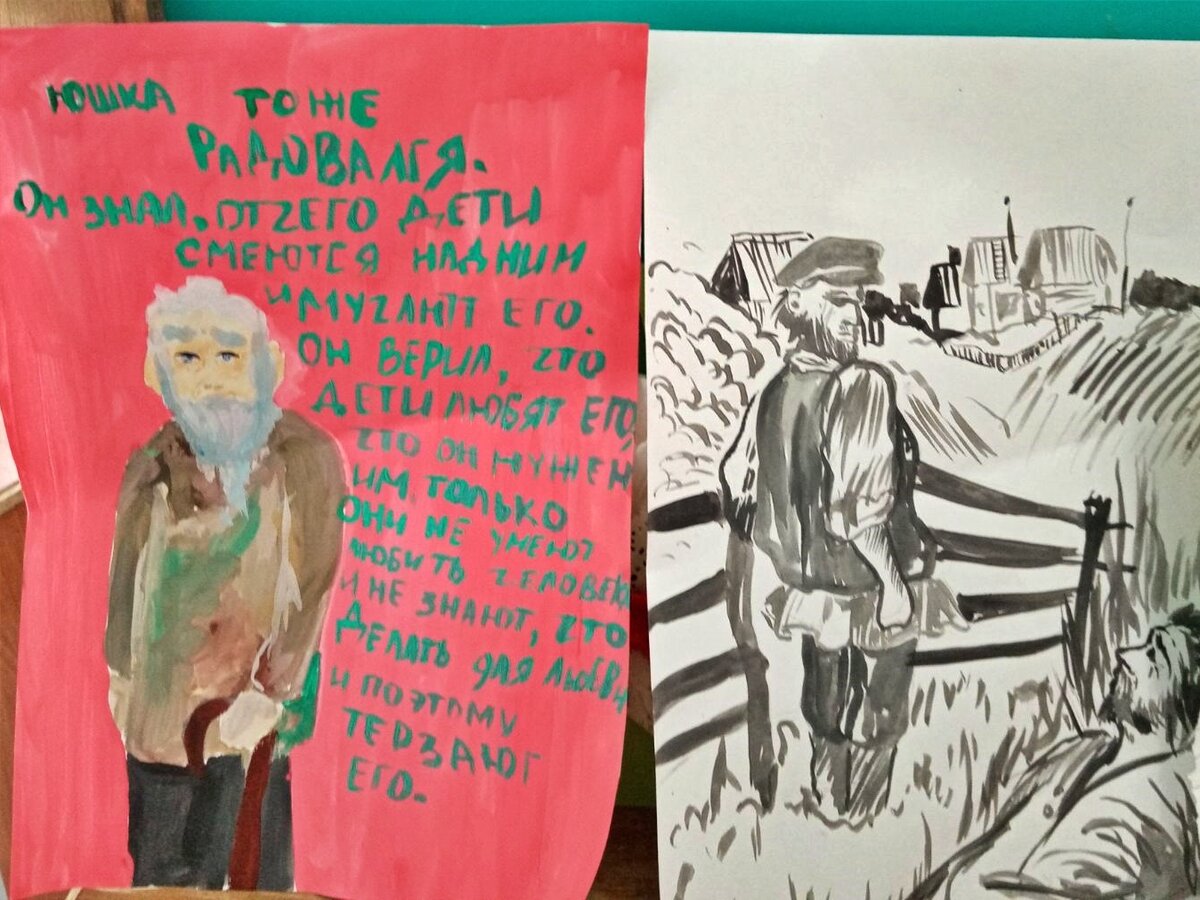 ЮШКА ТОЖЕ
РАДОВАЛСЯ.
ОН ЗНАЛ, ОТЧЕГО ДЕТИ
СМЕЮТСЯ НАД НИМ
И МУЧАЮТ ЕГО.
ОН ВЕРИЛ, ЧТО
ДЕТИ ЛЮБЯТ ЕГО,
ЧТО ОН НУЖЕН
ИМ, ТОЛЬКО
ОНИ НЕ УМЕЮТ
ЛЮБИТЬ ЧЕЛОВЕКА
И НЕ ЗНАЮТ, ЧТО
ДЕЛАТЬ ДЛЯ ЛЮБВИ
И ПОЭТОМУ
ТЕРЗАЮТ
ЕГО.